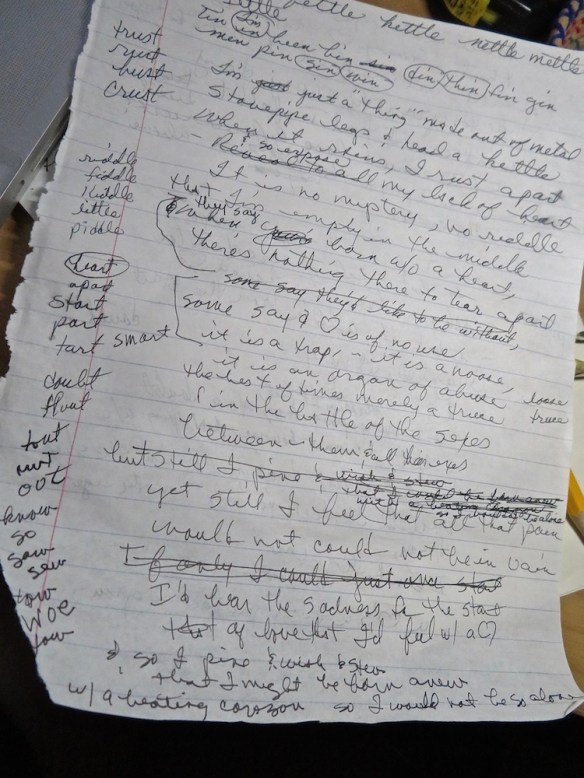 kettle nettle mettle
tin been bin sin din thin fin gin
men pin sin win
trust
rust
bust
crust
I'm just just a "thing" made out of metal
Stovepipe legs & head a kettle
When it rains, I rust apart
- so expose
to all my lack of heart
riddle
fiddle
middle
little
piddle
It is no mystery, no riddle
that I'm empty in the middle
they say
when born w/o a heart,
there's nothing there to tear apart
heart
apart
start
part
tart smart
some say they'd like to be without,
some say a ♡ is of no use
it is a trap, it is a noose,
it is an organ of abuse
the best of times merely a truce
noose
truce
doubt
flout
tout
out
in the battle of the sexes
between them & all their exes
but still I pine & wish & stew
that I could be born anew
with a beating
yet still I feel that all that pain
would not could not be in vain
know
so
sow
sew
tow
woe
If only I could just one start
I'd bear the sadness for the start
that of love that I'd feel w/ a ♡
& so I pine & wish & stew
that I might be born anew
w/ a beating corazon so I would not be so alone